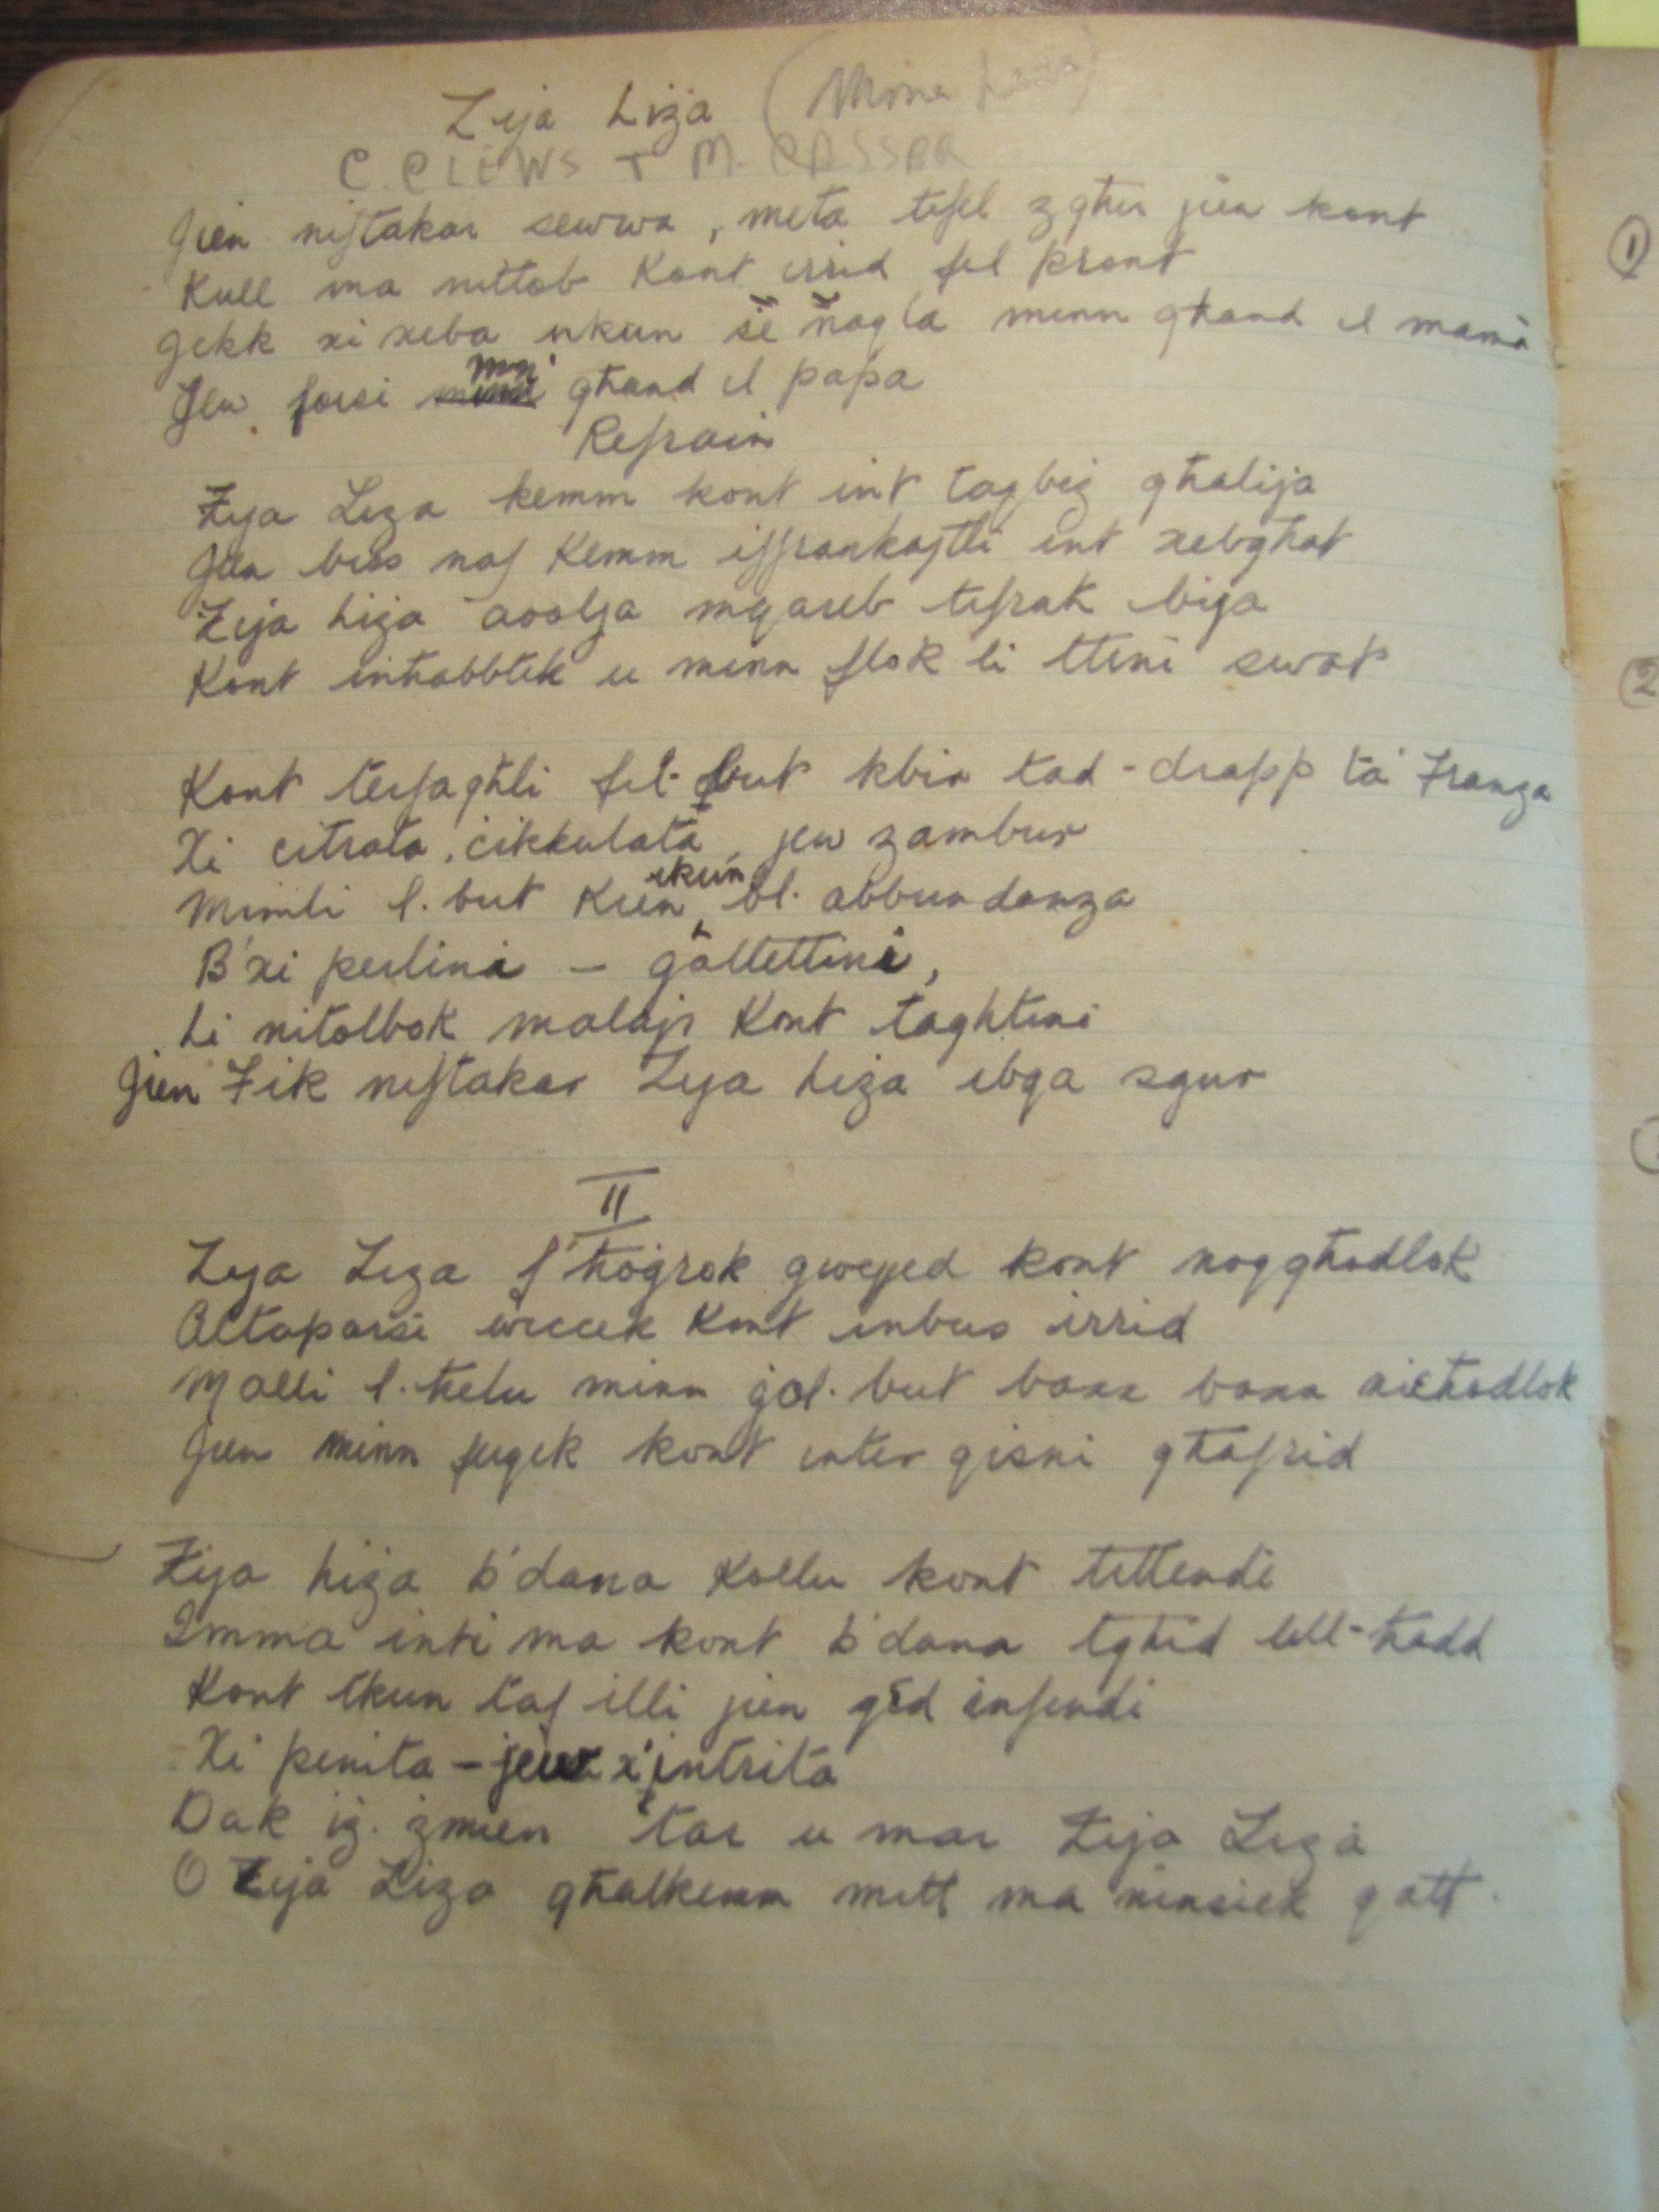 Zija Liża (Mona
C. CLEWS T M. CASSAR
Jien niftakar sewwa, meta tifel zghir jien kont
Kull ma nittob kont irrid fil pront
Jekk xi xeba nkun se naqla minn ghand il mamà
Jew forsi min ghand il papa
Refrain
Zija Liza kemm kont int taqbiż ghalija
Jien biss naf kemm iffrankajtli int xebghat
Zija Liża avolja mqareb tifrah bija
Kont inhobbtok u minn flok li ttini swat
Kont terfaghli fil-but kbir tad-drapp ta' Franza
Xi citrata, cikkulata, jew zambur
Mimli l-but kien ikun bl-abbundanza
B'xi perlini - gallettini,
Li nitolbok malajr kont taghtini
Jien Fik niftakar Zija Liża ibqa sgur
II
Zija Liza f'hoġrok gwejjed kont noqghodlok
Altaparsi wiċċek kont inbus irrid
Malli l-helu minn ġol-but baxx baxx niehodlok
Jien minn fuqek kont inter qisni ghafrid
Zija Liża b'dana kollu kont tittendi
Imma inti ma kont b'dana tghid lill-hadd
Kont tkun taf illi jien qed infendi
Xi penita - jew x'intrita
Dak iż-żmien tar u mar Zija Liża
O Zija Liża ghalkemm mitt ma ninsiek qatt.
1
2